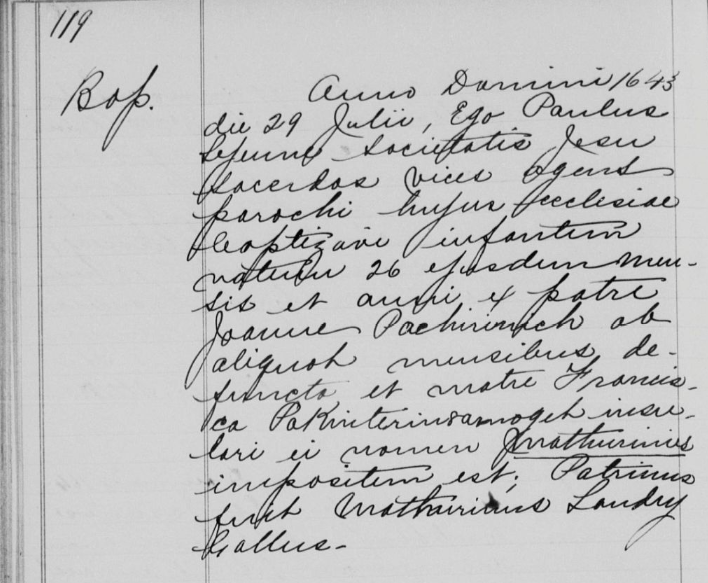 119
Bap. Anno Domini 1643
die 29 Julii, Ego Paulus
Lejeune Societatis Jesu
Sacerdos vices agens
parochi hujus ecclesiae
baptizavi infantem
natum 26 ejusdem men-
sis et anni ex patre
Joanne Pachirinich ab
aliquot mensibus de-
functo et matre Francis-
ca insu-
lari ei nomen Mathurinus
impositum est; Patrinus
fuit Mathurinus Landry
Gallus-